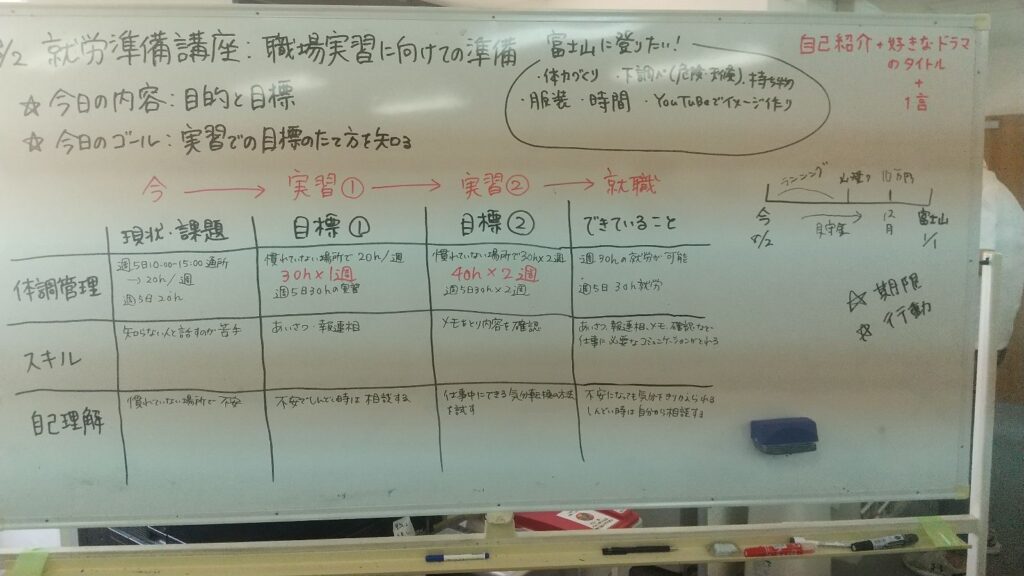 /2 就労準備講座：職場実習に向けての準備
☆今日の内容：目的と目標
☆今日のゴール：実習での目標のたて方を知る
富士山に登りたい！
・体力づくり ・下調べ(危険・天候)、持ち物
・服装 ・時間 ・YouTubeでイメージ作り
自己紹介+好きなドラマ
のタイトル
+
1言
今 → 実習① → 実習② → 就職
現状・課題 目標① 目標② できていること
体調管理
週5日10:00-15:00通所
→20h/週
週5日20h
慣れていない場所で20h/週
30h×1週
週5日30hの実習
慣れていない場所で30h×2週
40h×2週
週5日30h×2週
週30hの就労が可能
週5日 30h就労
スキル
知らない人と話すのが苦手
あいさつ・報連相
メモをとり内容を確認
あいさつ、報連相、メモ、確認など、
仕事に必要なコミュニケーションがとれる
自己理解
慣れていない場所で不安
不安でしんどい時は相談する
仕事中にできる気分転換の方法
を試す
不安になっても気分をきりかえられる
しんどい時は自分から相談する
ランニング 10万円
今 貯金 12月 富士山
1/1
☆期限
☆行動